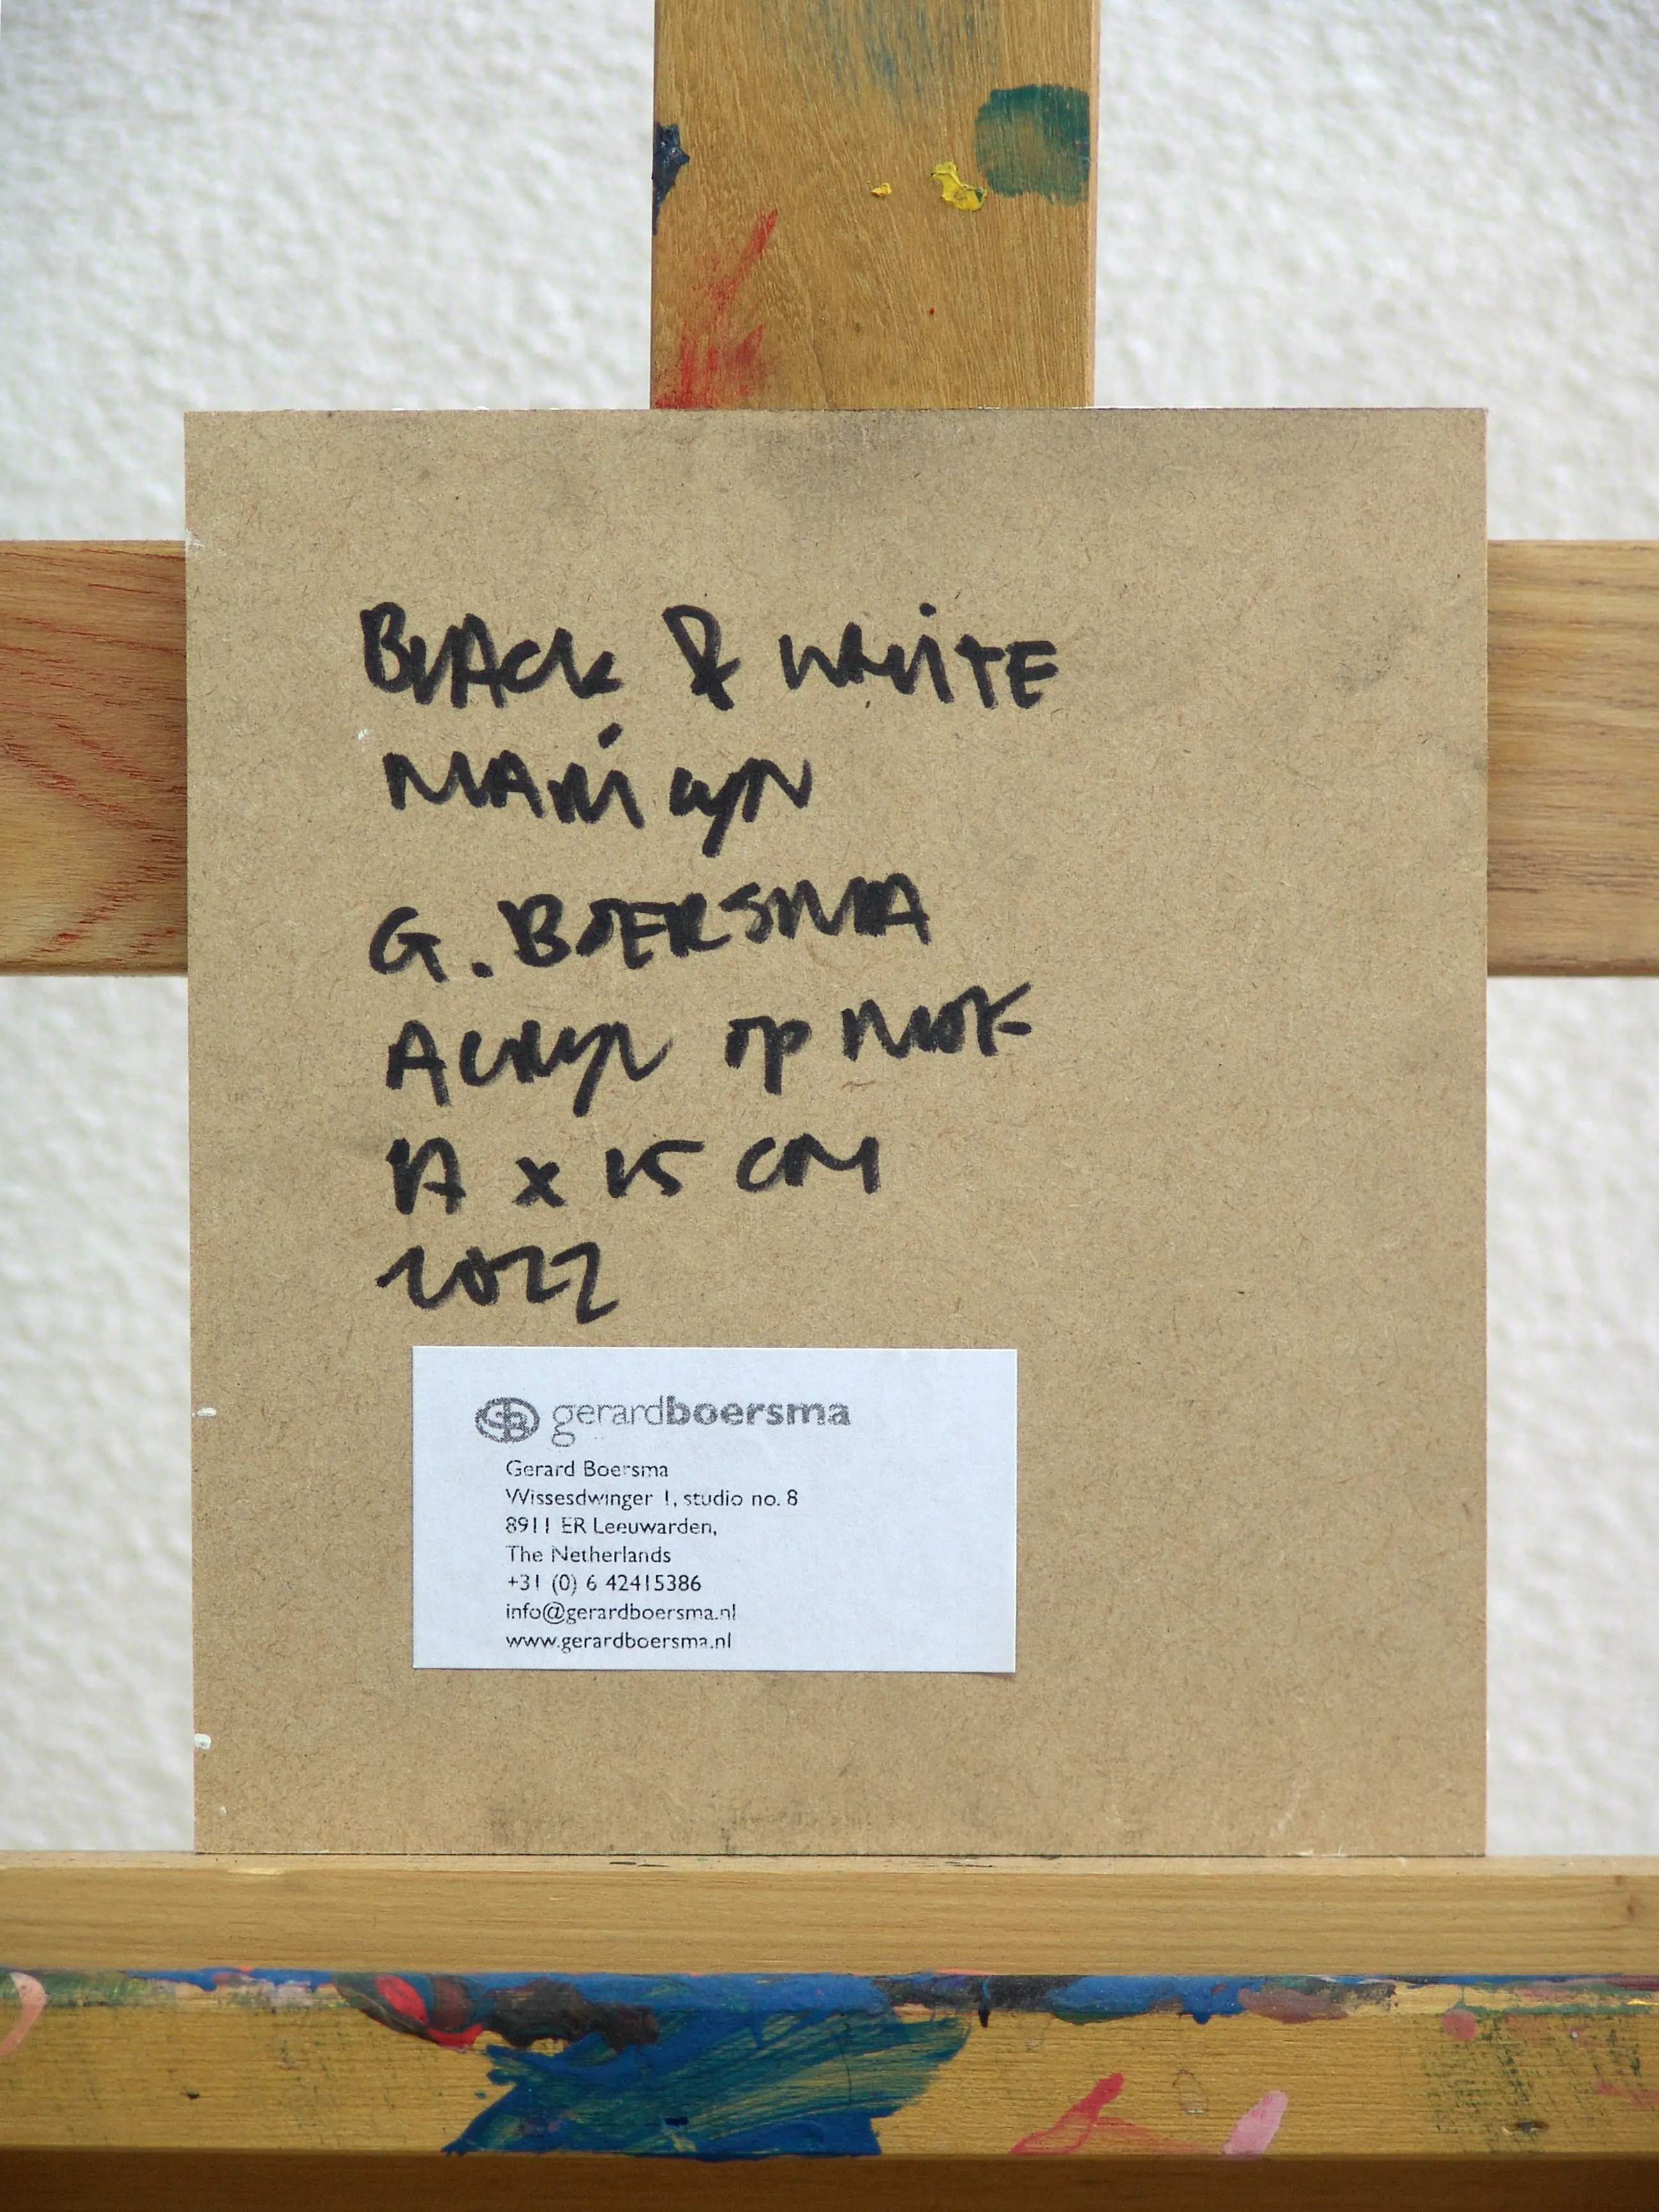 BLACK & WHITE
MARILYN
G. BOERSMA
ACRYL OP MDF
17 x 15 CM
2022
GB gerardboersma
Gerard Boersma
Wissesdwinger 1, studio no. 8
8911 ER Leeuwarden,
The Netherlands
+31 (0) 6 42415386
info@gerardboersma.nl
www.gerardboersma.nl